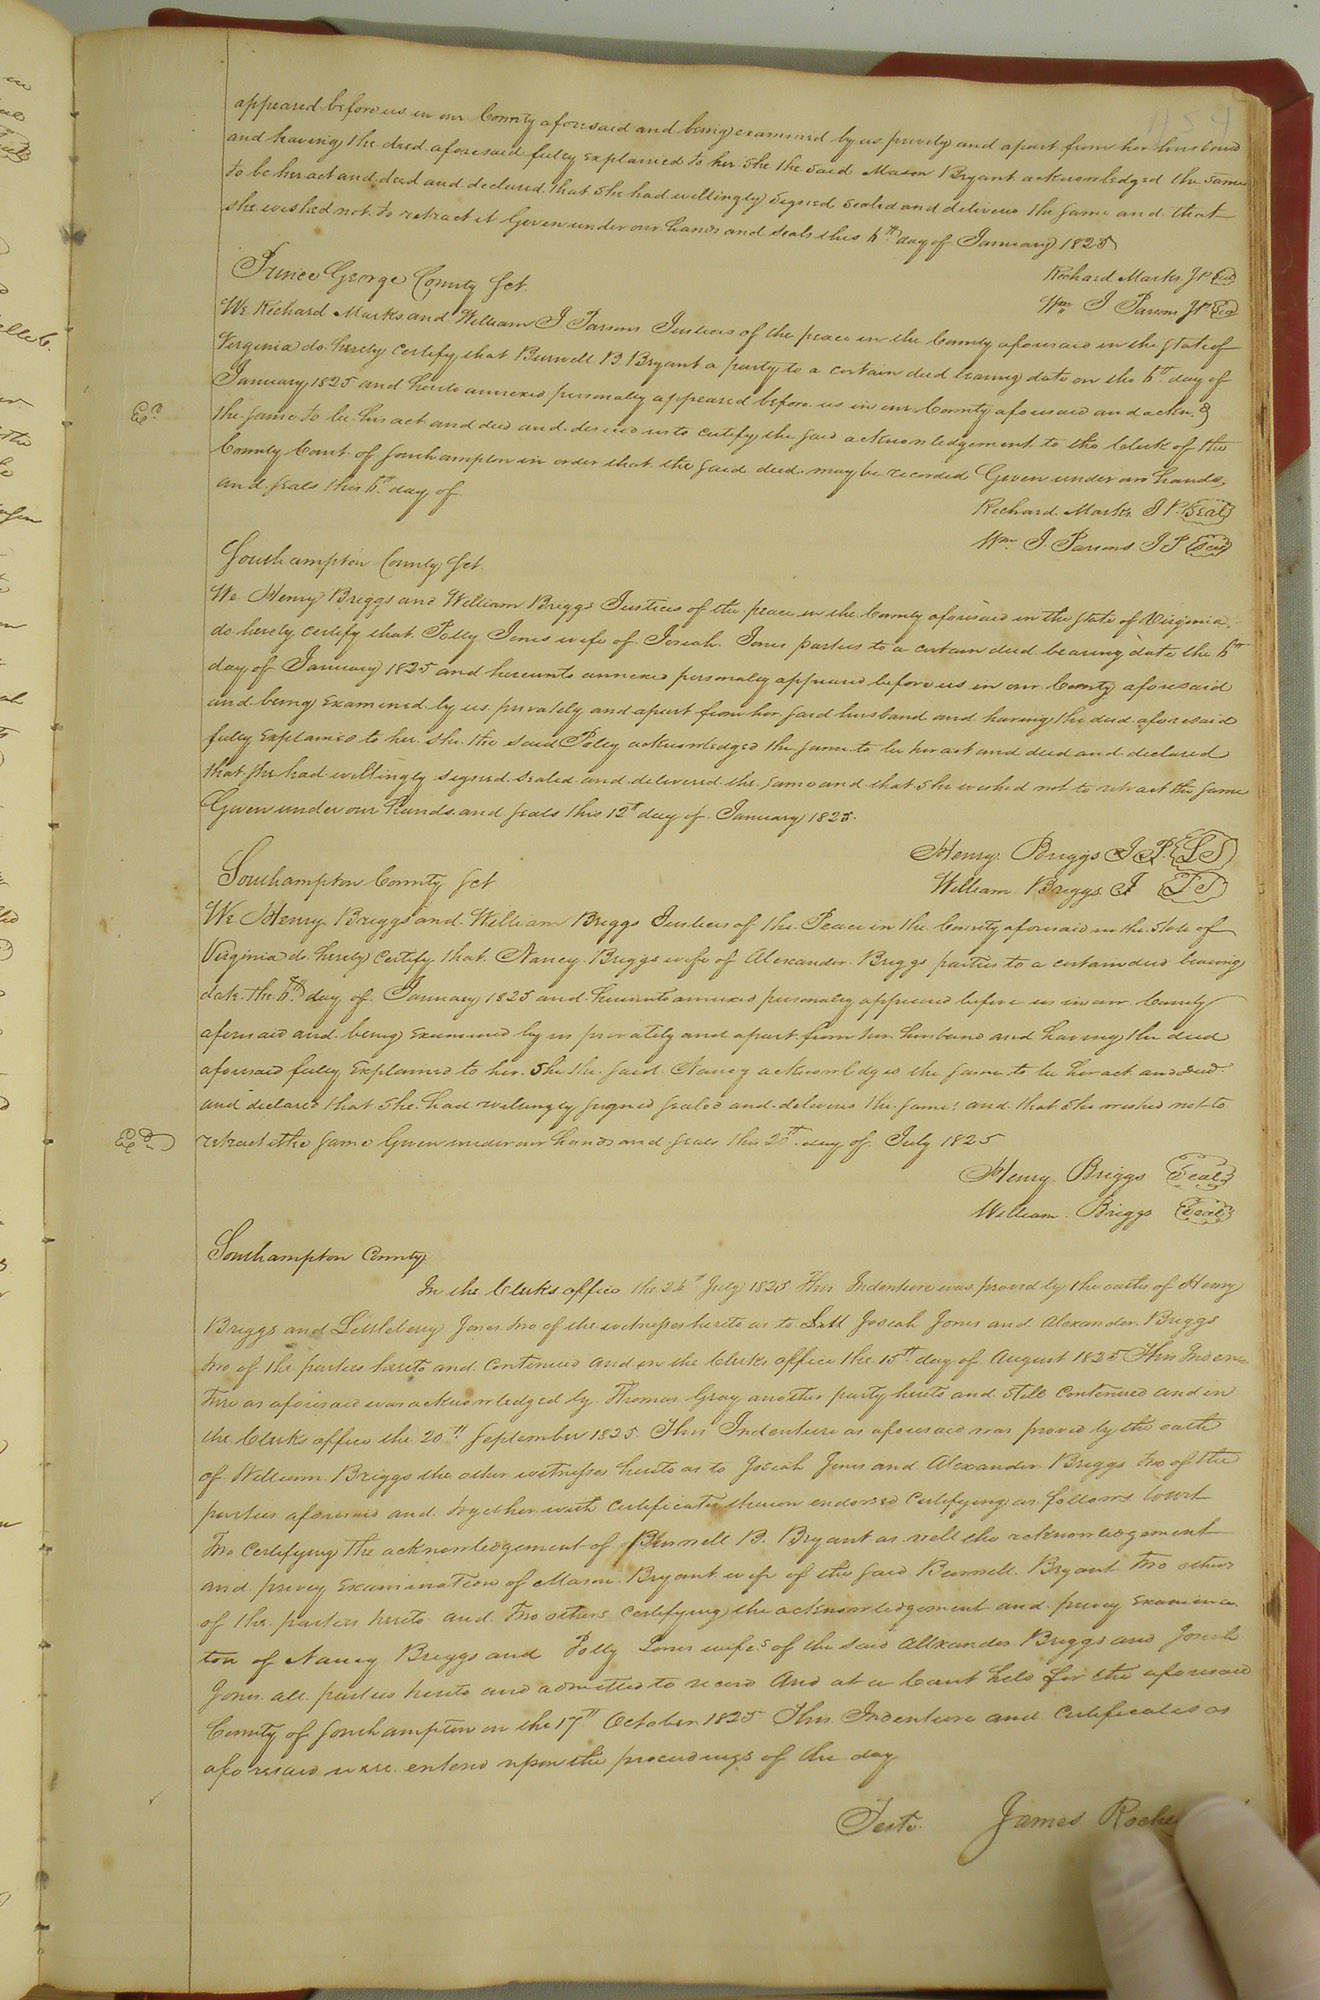 appeared before us in our County aforesaid and being examined by us privily and apart from her husband
and having the deed aforesaid fully explained to her she the said Mason Bryant acknowledged the same
to be her act and deed and declared that she had willingly signed sealed and delivered the same and that
she wished not to retract it Given under our hands and seals this 6th day of January 1825
Richard Marks JP Seal
Prince George County Sct.
Wm J Parsons JP Seal
We Richard Marks and William J Parsons Justices of the peace in the County aforesaid in the State of
Virginia do hereby certify that Burwell B Bryant a party to a certain deed bearing date on the 6th day of
January 1825 and hereto annexed personally appeared before us in our County aforesaid and ackn. d
the same to be his act and deed and desired us to certify the said acknowledgement to the Clerk of the
County Court of Southampton in order that the said deed may be recorded Given under our hands
and seals this 6th day of
Richard Marks J P. Seal
Wm J. Parsons J P Seal
Southampton County Sct.
We Henry Briggs and William Briggs Justices of the peace in the County aforesaid in the State of Virginia
do hereby certify that Polly Jones wife of Josiah Jones parties to a certain deed bearing date the 6th
day of January 1825 and hereunto annexed personally appeared before us in our County aforesaid
and being examined by us privately and apart from her said husband and having the deed aforesaid
fully explained to her she the said Polly acknowledged the same to be her act and deed and declared
that she had willingly signed sealed and delivered the same and that she wished not to retract the same
Given under our hands and seals this 12th day of January 1825.
Henry Briggs J P. LS
William Briggs J LS
Southampton County Sct
We Henry Briggs and William Briggs Justices of the Peace in the County aforesaid in the State of
Virginia do hereby certify that Nancy Briggs wife of Alexander Briggs parties to a certain deed bearing
date the 6th day of January 1825 and hereunto annexed personally appeared before us in our County
aforesaid and being examined by us privately and apart from her husband and having the deed
aforesaid fully explained to her she the said Nancy acknowledged the same to be her act and deed
and declared that she had willingly signed sealed and delivered the same and that she wished not to
retract the same Given under our hands and seals this day of July 1825
Henry Briggs Seal
William Briggs Seal
Southampton County
In the Clerks office the 24th July 1825 This Indenture was proved by the oaths of Henry
Briggs and Littlebury Jones two of the witnesses hereto as to Josiah Jones and Alexander Briggs
two of the parties hereto and Continued and in the Clerks office the 15th day of August 1825 This Inden
ture as aforesaid was acknowledged by Thomas Gray another party hereto and still Continued and in
the Clerks office the 20th September 1825 This Indenture as aforesaid was proved by the oath
of William Briggs the other witness hereto as to Josiah Jones and Alexander Briggs two of the
parties aforesaid and together with Certificates thereon endorsed Certifying as follows towit
Two Certifying the acknowledgement of Burwell B. Bryant as well the acknowledgement
and privy examination of Mason Bryant wife of the said Burwell Bryant two others
of the parties hereto and two others Certifying the acknowledgement and privy Examina
tion of Nancy Briggs and Polly Jones wifes of the said Alexander Briggs and Josiah
Jones all parties hereto and admitted to record And at a Court held for the aforesaid
County of Southampton on the 17th October 1825 This Indenture and Certificates as
aforesaid were entered upon the proceedings of the day
Teste. James